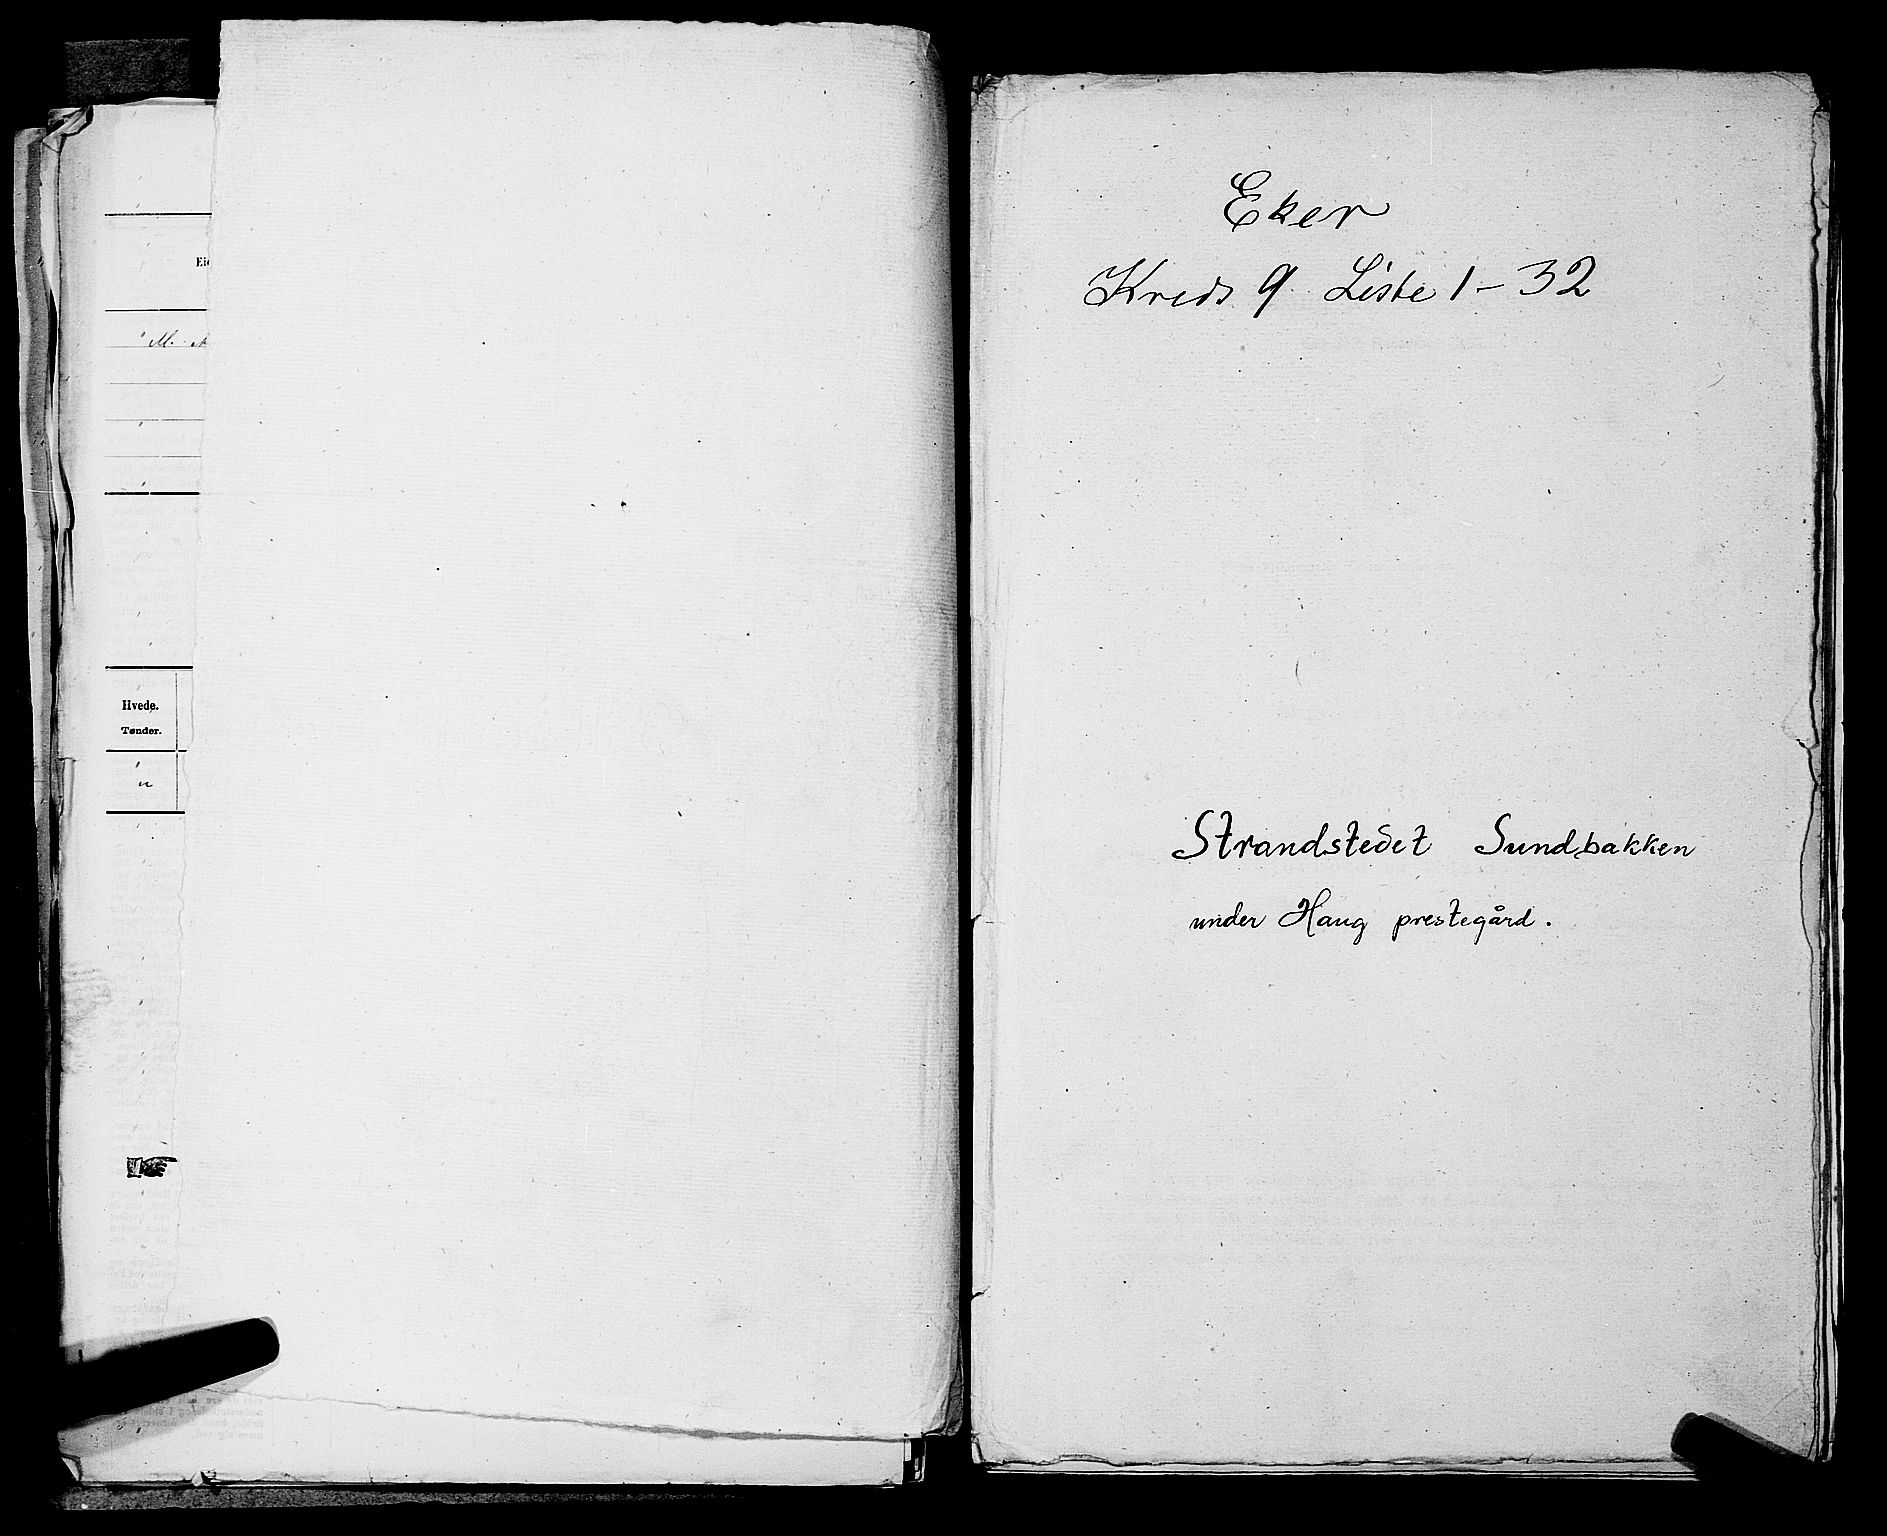 Eie
Hvede.
Tønder.
"
Eker
Kreds 9. Liste 1-32
Strandstedet Sundbakken
under Haug prestegård.